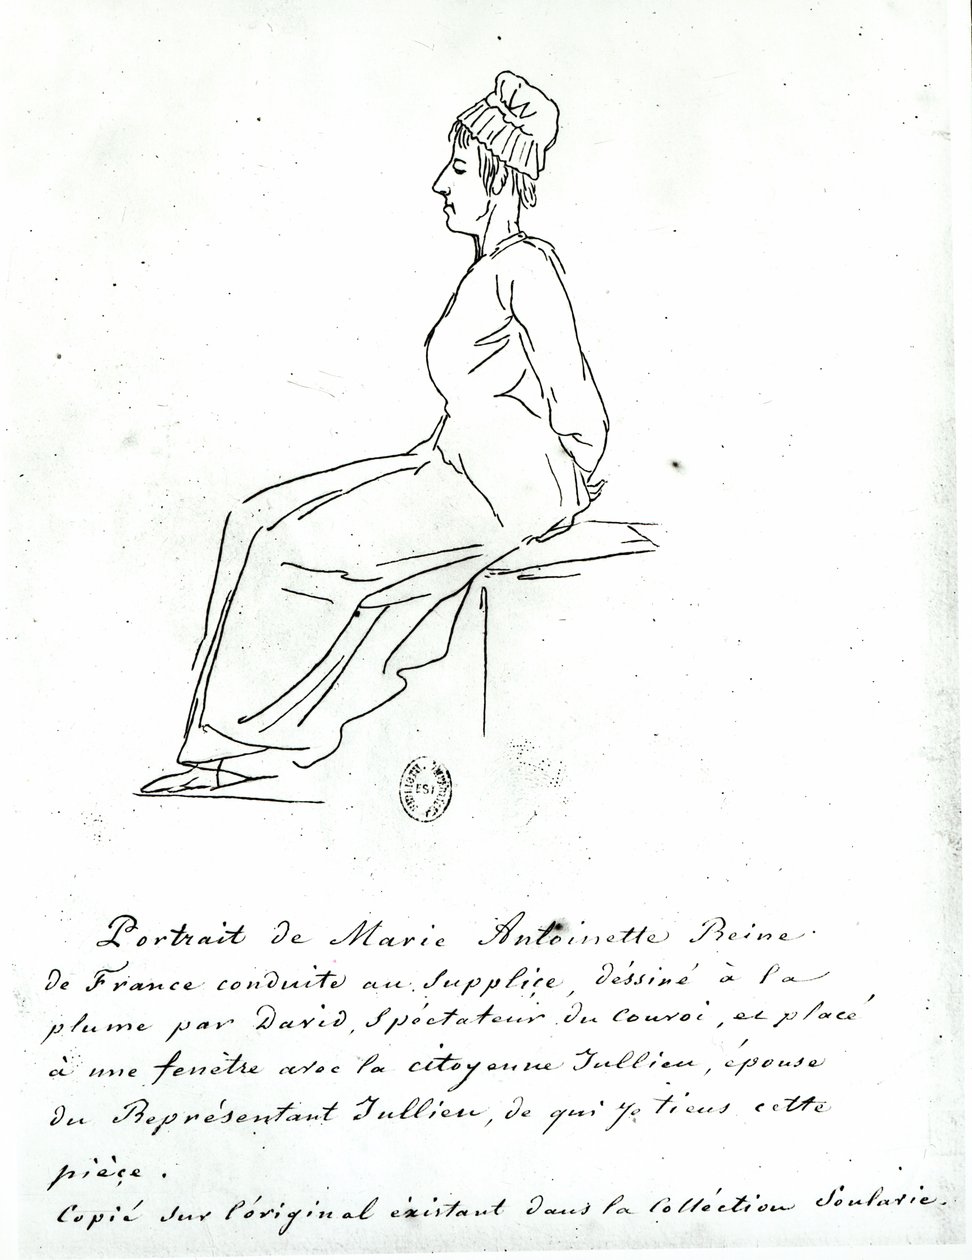 EST
Portrait de Marie Antoinette Reine
de France conduite au Supplice, déssiné à la
plume par David, Spéctateur du Couvoi, et placé
à une fenêtre avec la citoyenne Jullien, épouse
du Représentant Jullien, de qui je tiens cette
pièçe.
Copié sur l'original éxistant dans la Colléction Soularie.